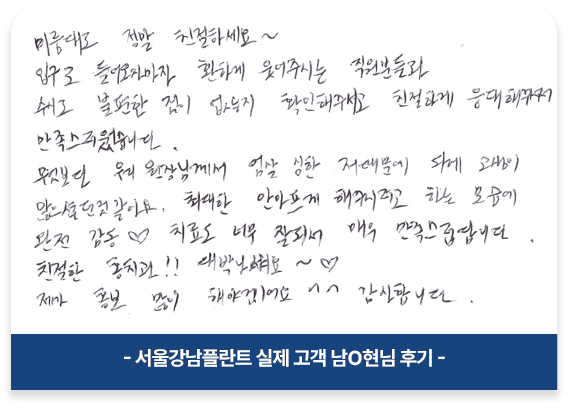 이름대로 정말 친절하세요~
입구로 들어오자마자 환하게 웃어주시는 직원분들과
수시로 불편한 점이 없는지 확인해주시고 친절하게 응대해주셔서
만족스러웠습니다.
무엇보다 우리 원장님께서 엄살 심한 저때문에 되게 고생이
많으셨던것같아요. 최대한 안아프게 해주시려고 하는 모습에
완전 감동♡ 치료도 너무 잘되서 매우 만족스럽답니다.
친절한 치과!! 대박나세요~♡
제가 홍보 많이 해야겠어요^^ 감사합니다.
- 서울강남플란트 실제 고객 남O현님 후기 -